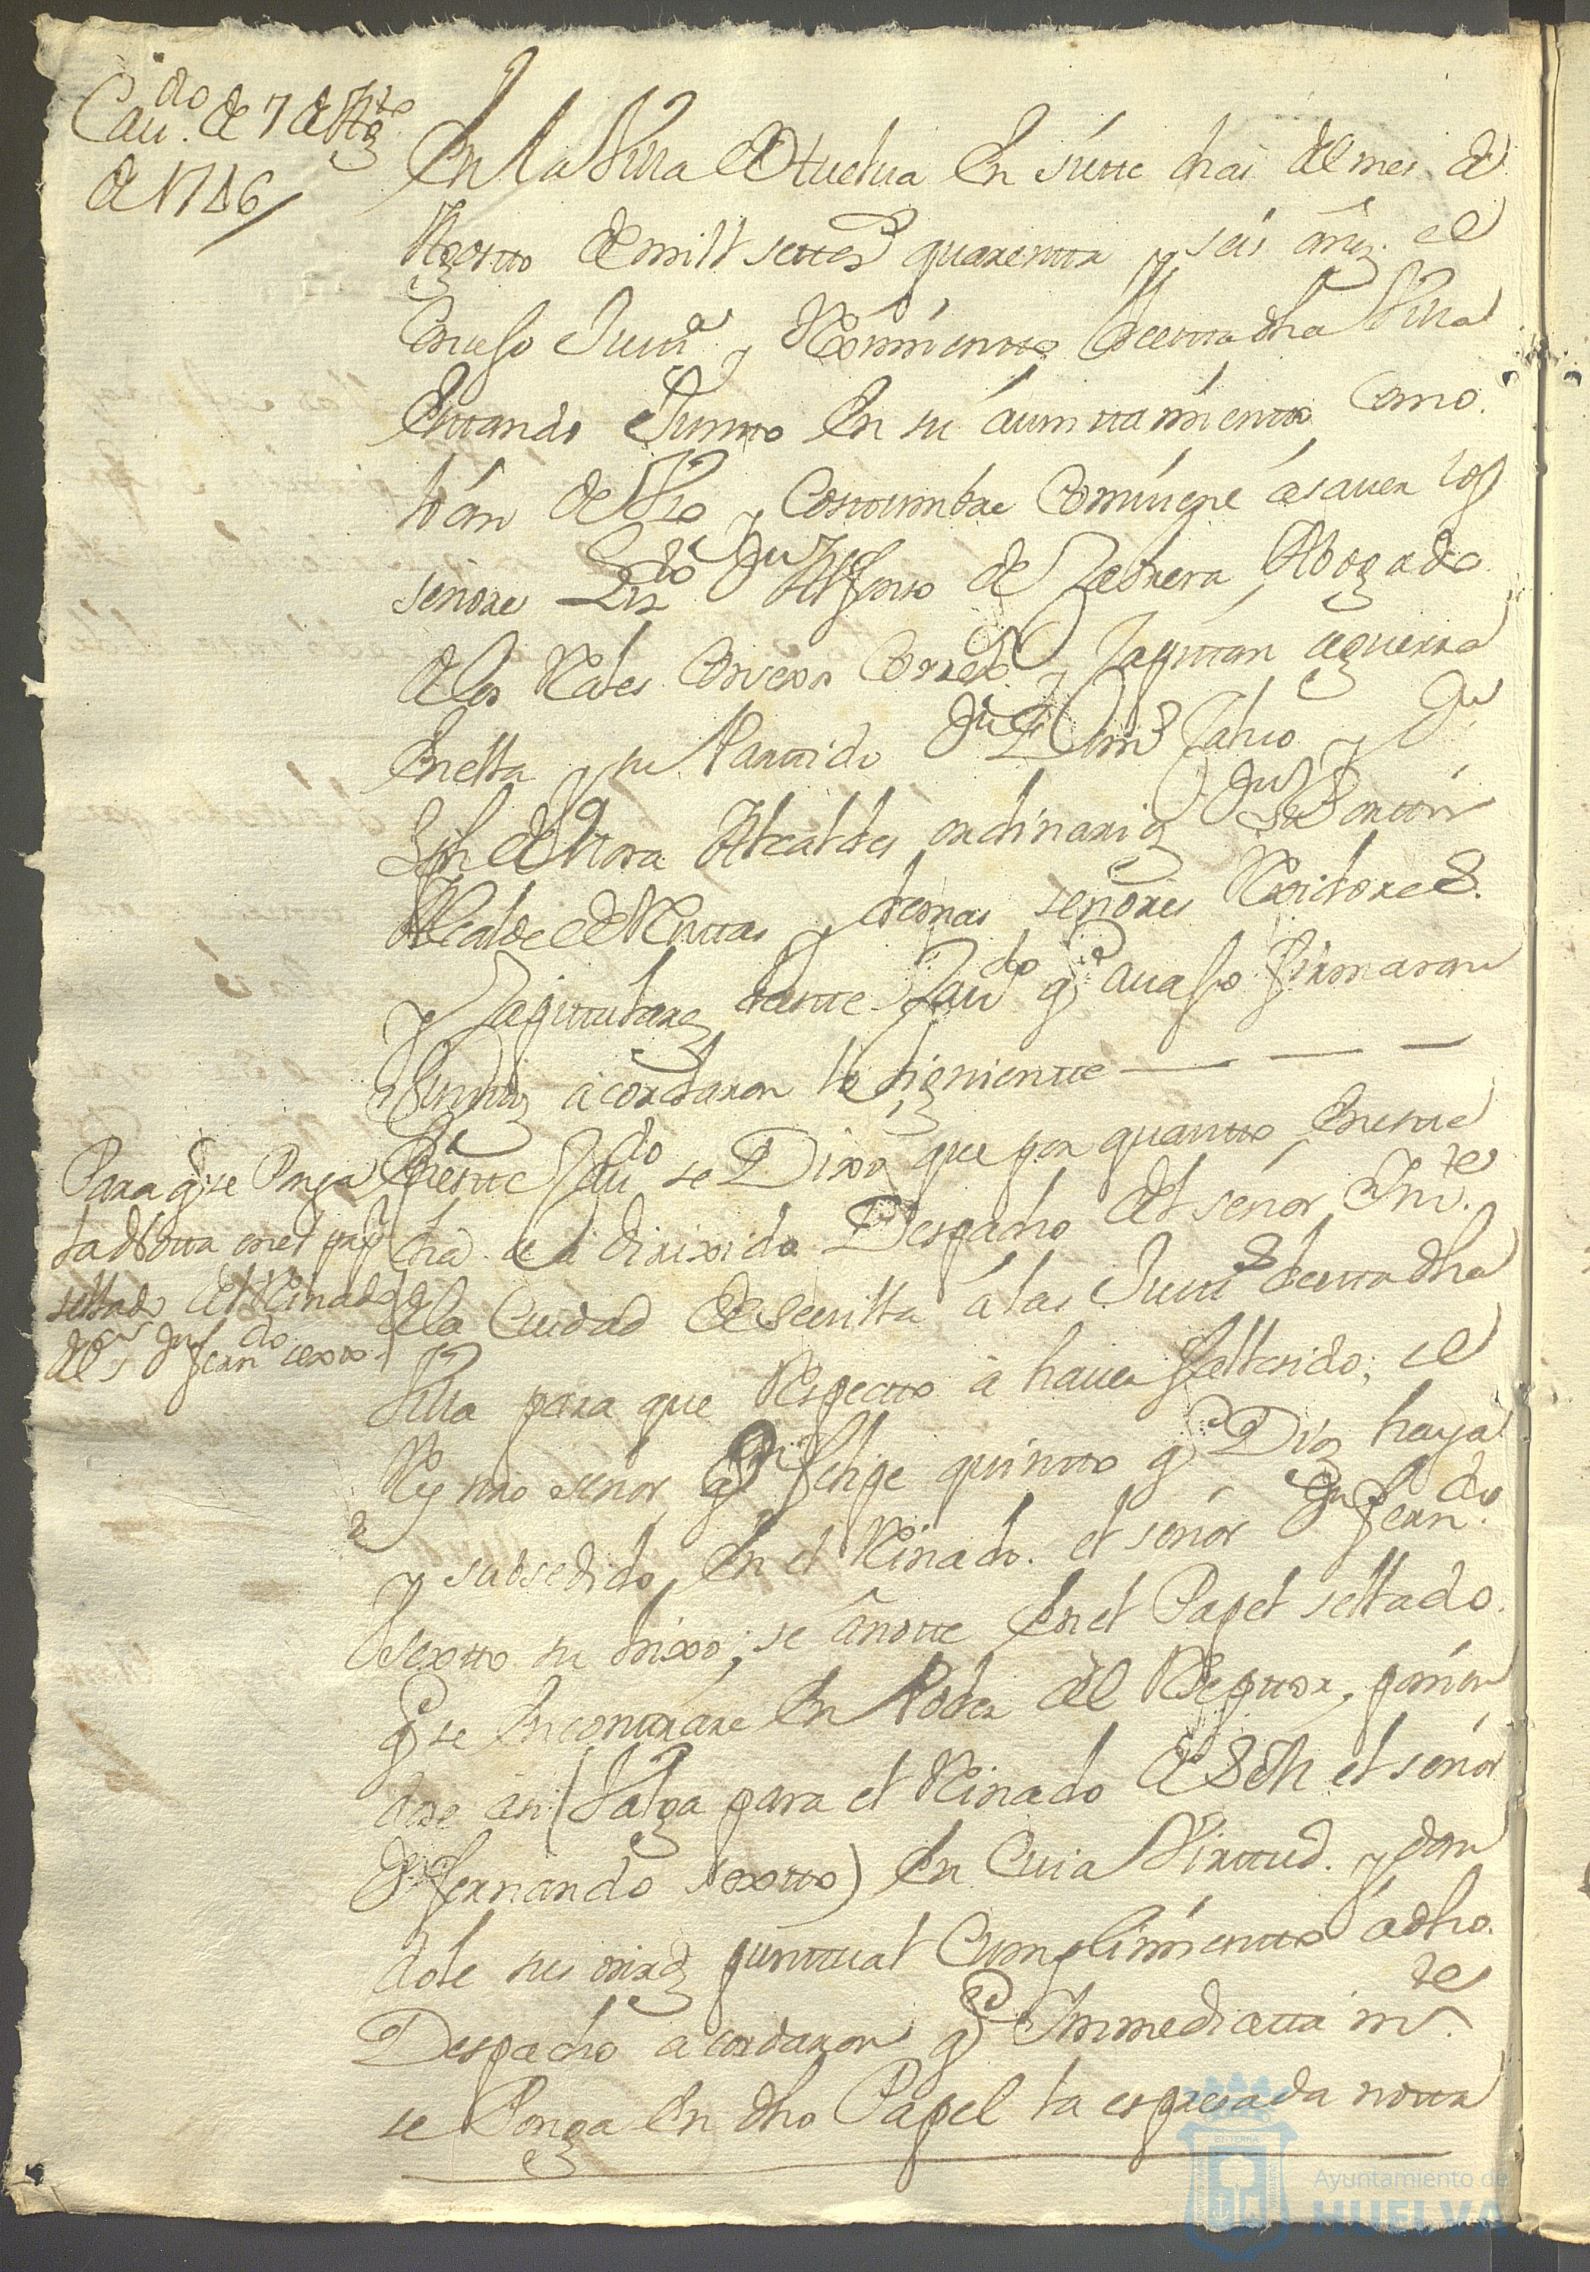 Cau.do de 7 de Ag.to
de 1746
En la Villa de Huelua en siette dias del mes de
Agostto de mill settez.s quarentta y seis años el
Consejo Justt.a y Reximientto destta dha Villa
Esttando Juntto en su aiunttamientto Como
lo án de Vso y Costtumbre Combiene ásauer los
señores Liz.do Dn Alfonso de Cabrera, Abogado
de los R.ales Consexos Corre.or y Capittan aguerra
En ella y su Parttido Dn Dom.o Calvo y Dn
Jph de Mora Alcaldes ordinarios Dn Ponttón
Alcalde de Millttas y demas señores Rexidores
y Capittulares deste Cau.do q.e auajo firmaran
Junttos acordaron lo siguientte
Para q.e se Ponga
la Notta en el pap.l
sellado del Reinado
del s.r Dn Fern.do sextto
En estte Cau.do se Dixo que por quantto En estte
dia se á dirixido Despacho del señor Int.te
de la Ciudad de Seuilla á las Justt.s destta dha
Villa para que Respectto á hauer fallesido, el
Rey nro señor Dn Felipe quintto q.e Dios haya
y subsedido, en el Reinado. el señor Dn Fern.do
Sextto su hixo; se ánotte en el Papel sellado
q.e se encontrare en Poder del Reseptor, ponien
dose asi (Valga para el Reinado de S.M. el señor
Dn Fernando sextto) En Cuia Virttud. y dan
dole sus mrds punttual Cumplimientto á dho.
Despacho acordaron q.e Inmediatta m.te
se Ponga en dho Papel la espresada notta
Ayuntamiento de
HUELVA